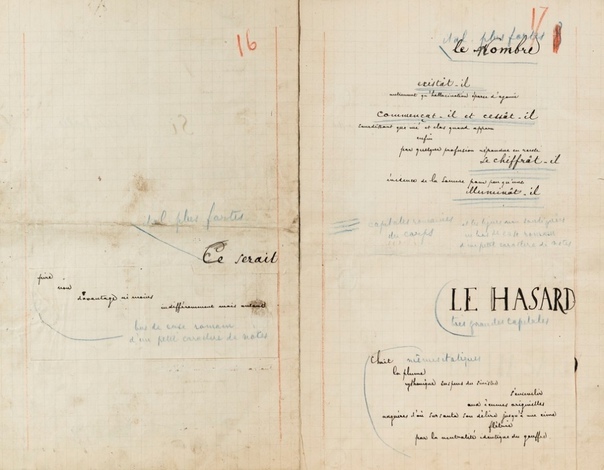 16
ital. plus fortes
Ce serait
pire
non
davantage ni moins
indifféremment mais autant
bas de case romain
d'un petit caractère de notes
17
ital. plus fortes
le Nombre
existât-il
autrement qu'hallucination éparse d'agonie
commençât-il et cessât-il
sourdant que nié et clos quand apparu
enfin
par quelque profusion répandue en rareté
Se chiffrât-il
évidence de la somme pour peu qu'une
illuminât-il
capitales romaines
du corps
et les lignes
en bas de case romain
d'un petit caractère de notes
LE HASARD
très grandes capitales
Choit mêmes italiques
la plume
rythmique suspens du sinistre
s'ensevelir
aux écumes originelles
naguères d'où sursauta son délire jusqu'à une cime
flétrie
par la neutralité identique du gouffre